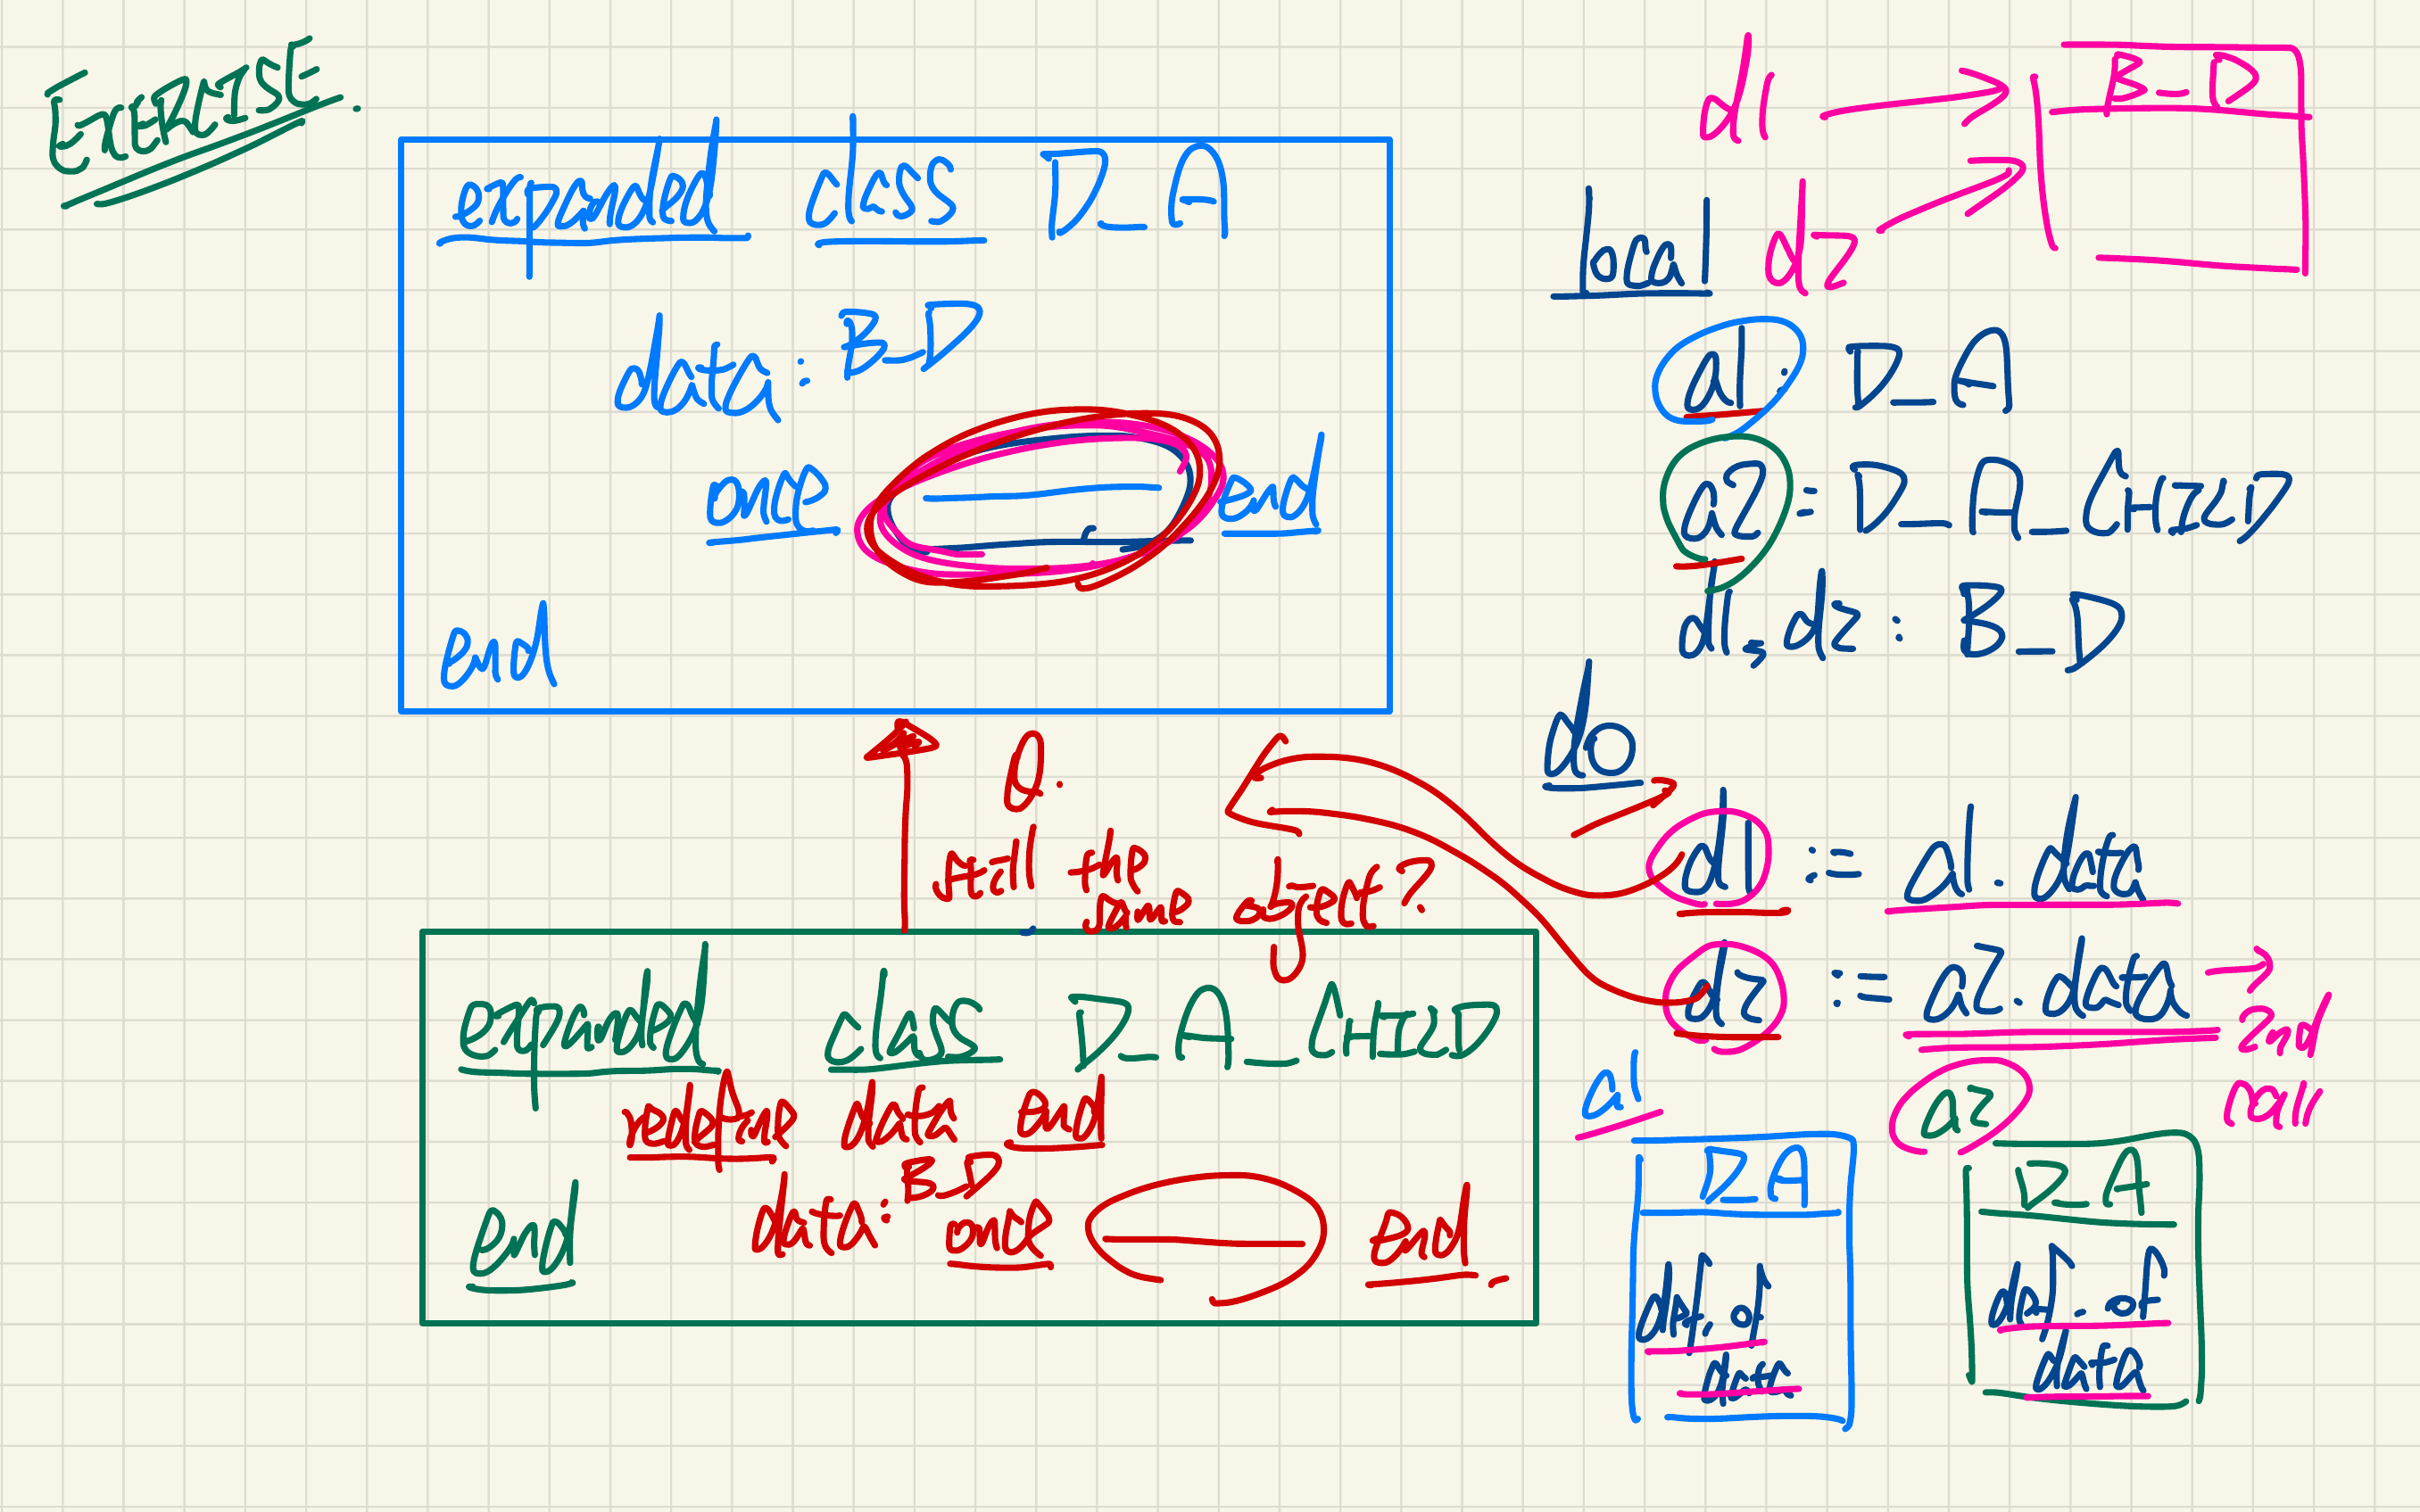 EXERCISE.
expanded class D_A
data: B_D
once end
end
Q.
still the
same object?
expanded class D_A_CHILD
redefine data end
data: B_D once end
end
d1 B_D
d2
local
a1: D_A
a2: D_A_CHILD
d1, d2: B_D
do
d1 := a1.data
d2 := a2.data → 2nd
call
a1 a2
D_A D_A
def. of def. of
data data